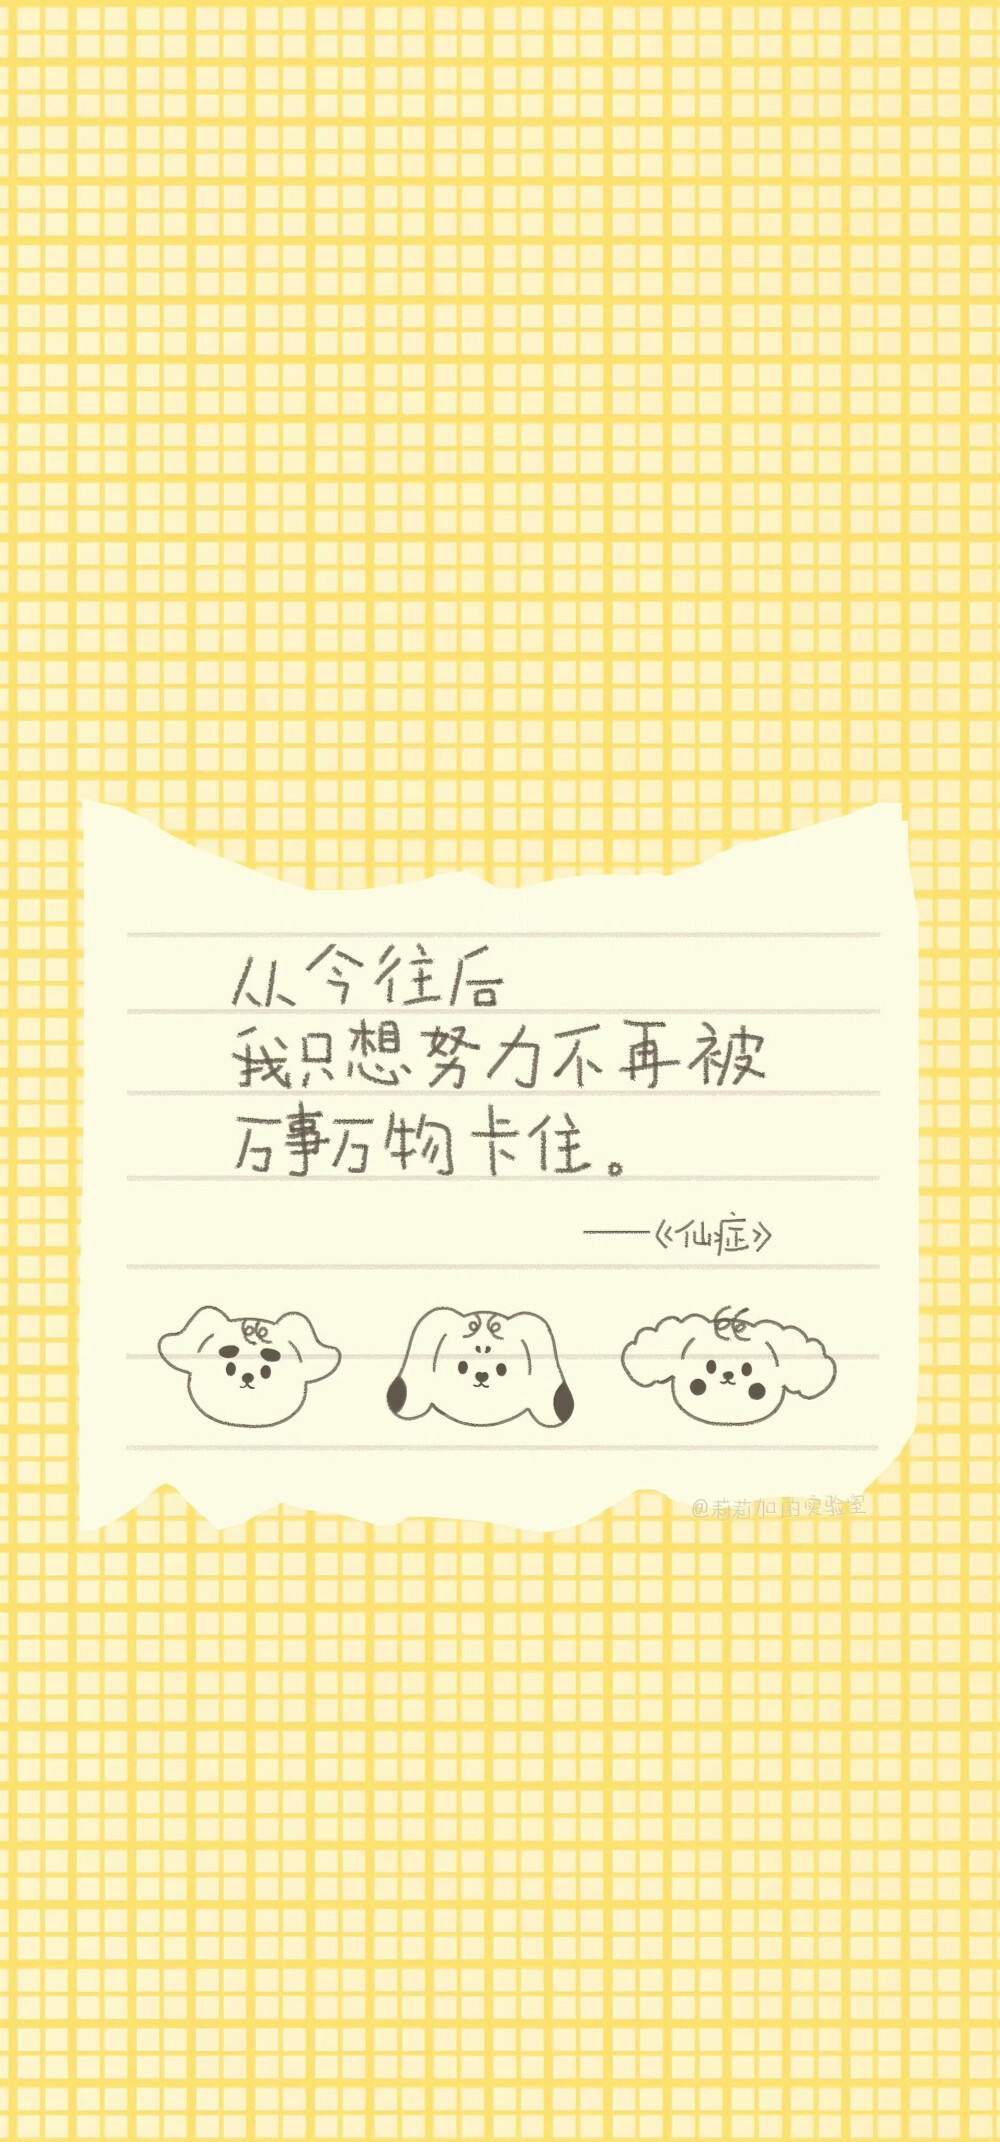 从今往后
我只想努力不再被
万事万物卡住。
——《仙症》
@莉莉加的实验室